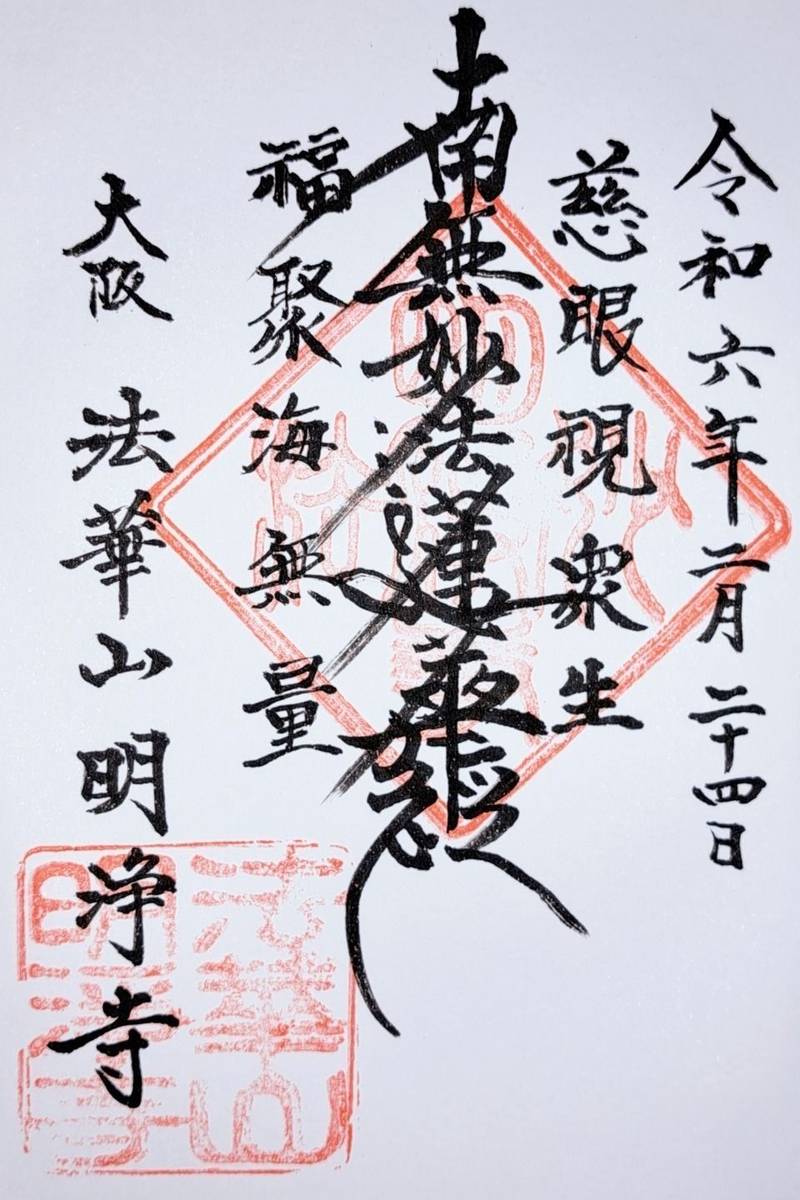 令和六年二月二十四日
慈眼視衆生
南無妙法蓮華経
福聚海無量
大阪 法華山明浄寺
法華山
明浄寺